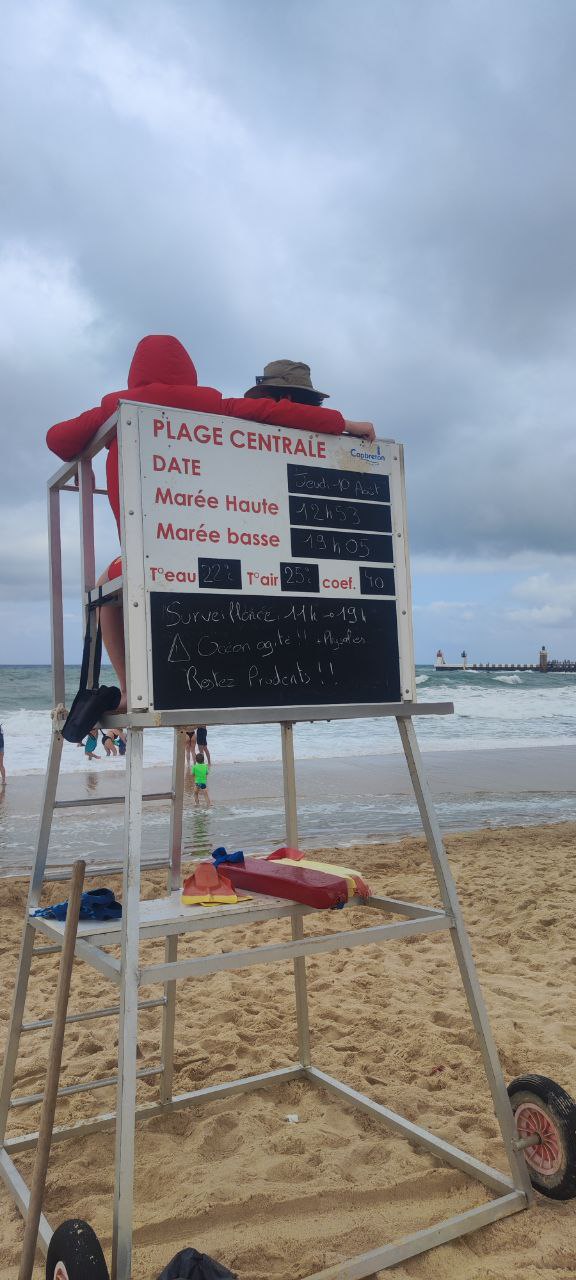 PLAGE CENTRALE
Capbreton
DATE Jeudi 10 Août
Marée Haute 12h53
Marée basse 19h05
T°eau 22°c T°air 25°c coef. 40
Surveillance 11h → 19h
⚠ Océan agité !! + Physalies
Restez Prudents !!